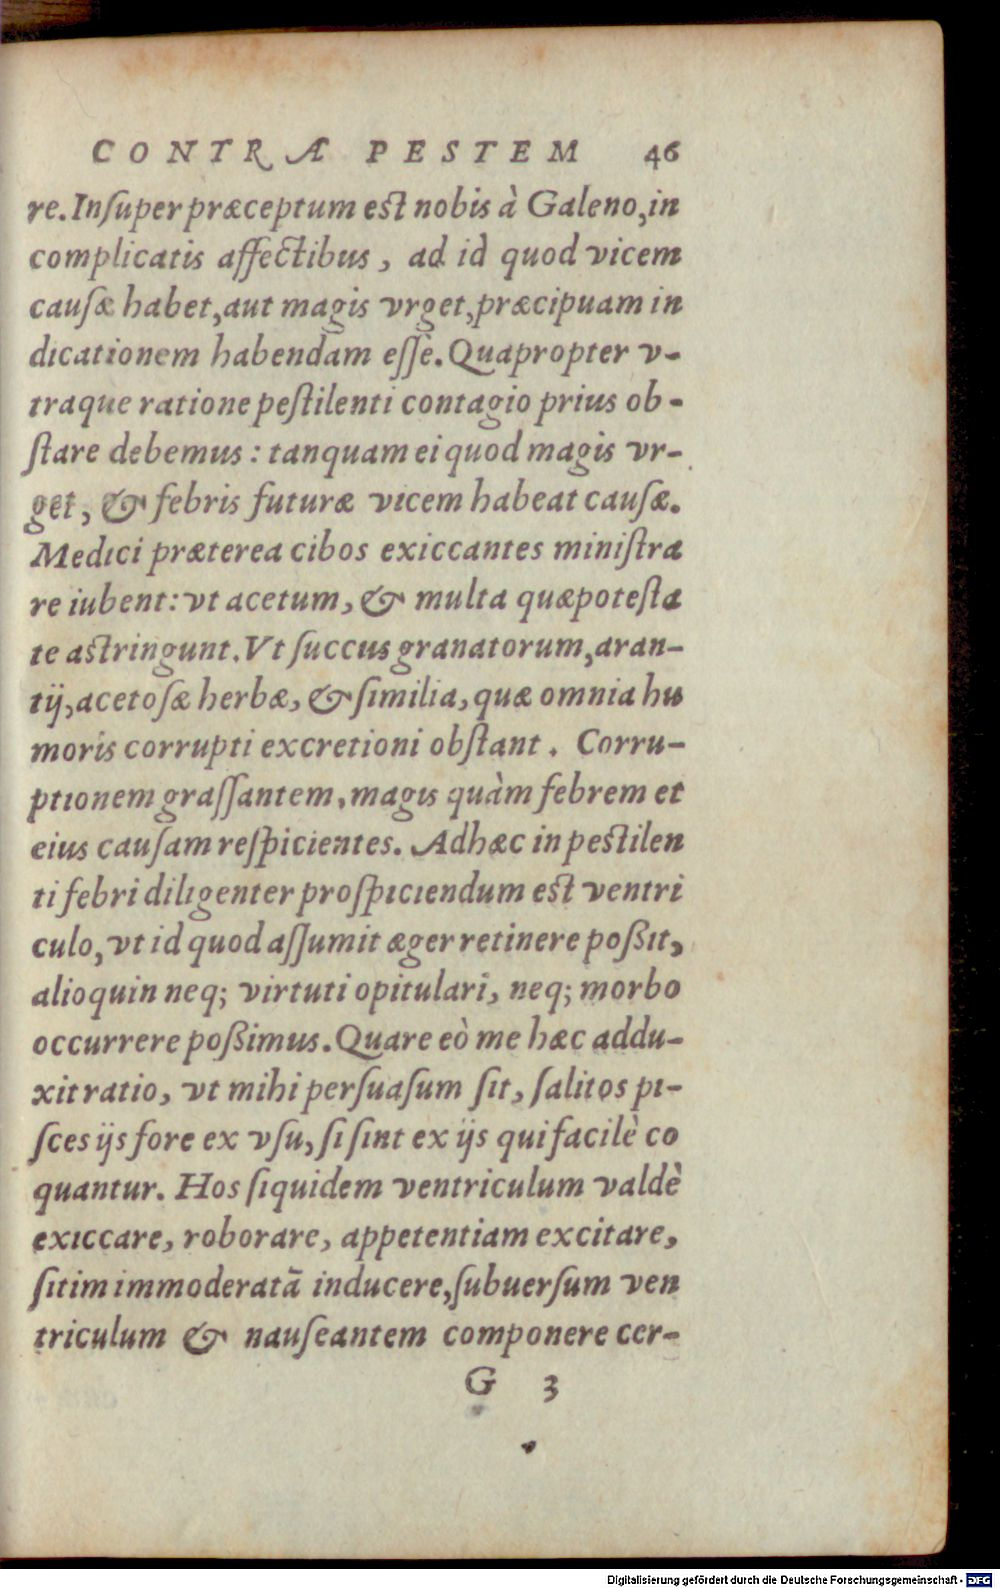 CONTRA PESTEM 46
re. Inſuper præceptum est nobis à Galeno, in
complicatis affectibus, ad id quod vicem
cauſæ habet, aut magis vrget, præcipuam in
dicationem habendam eſſe. Quapropter v-
traque ratione peſtilenti contagio prius ob-
ſtare debemus: tanquam ei quod magis vr-
get, & febris futuræ vicem habeat cauſæ.
Medici præterea cibos exiccantes miniſtra
re iubent: vt acetum, & multa quæ poteſta
te astringunt. Vt ſuccus granatorum, aran-
tij, acetoſæ herbæ, & ſimilia, quæ omnia hu
moris corrupti excretioni obſtant. Corru-
ptionem graſſantem, magis quàm febrem et
eius cauſam reſpicientes. Adhæc in pestilen
ti febri diligenter proſpiciendum est ventri
culo, vt id quod aſſumit æger retinere poßit,
alioquin neq; virtuti opitulari, neq; morbo
occurrere poßimus. Quare eò me hæc addu-
xit ratio, vt mihi perſuaſum ſit, ſalitos pi-
ſces ijs fore ex vſu, ſi ſint ex ijs qui facilè co
quantur. Hos ſiquidem ventriculum valdè
exiccare, roborare, appetentiam excitare,
ſitim immoderatã inducere, ſubuerſum ven
triculum & nauſeantem componere cer-
G 3
Digitalisierung gefördert durch die Deutsche Forschungsgemeinschaft - DFG